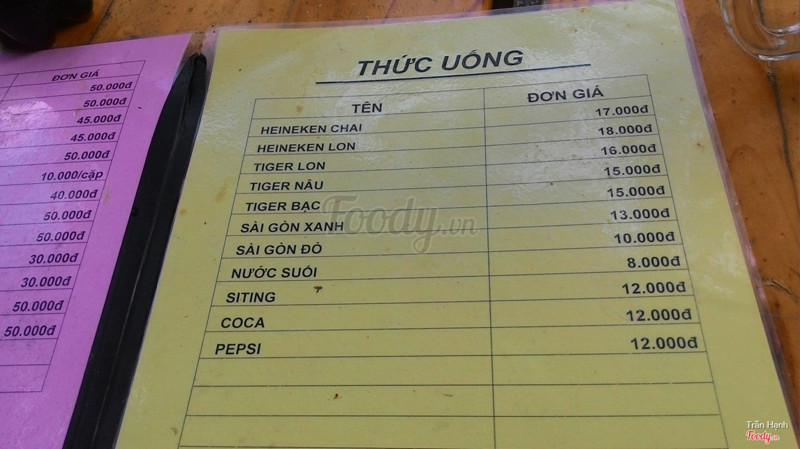 ĐƠN GIÁ
50.000đ
50.000đ
45.000đ
45.000đ
50.000đ
10.000/cặp
40.000đ
50.000đ
50.000đ
30.000đ
30.000đ
50.000đ
50.000đ
THỨC UỐNG
TÊN ĐƠN GIÁ
HEINEKEN CHAI 17.000đ
HEINEKEN LON 18.000đ
TIGER LON 16.000đ
TIGER NÂU 15.000đ
TIGER BẠC 15.000đ
SÀI GÒN XANH 13.000đ
SÀI GÒN ĐỎ 10.000đ
NƯỚC SUỐI 8.000đ
SITING 12.000đ
COCA 12.000đ
PEPSI 12.000đ
Foody.vn
Trần Hạnh
Foody.vn